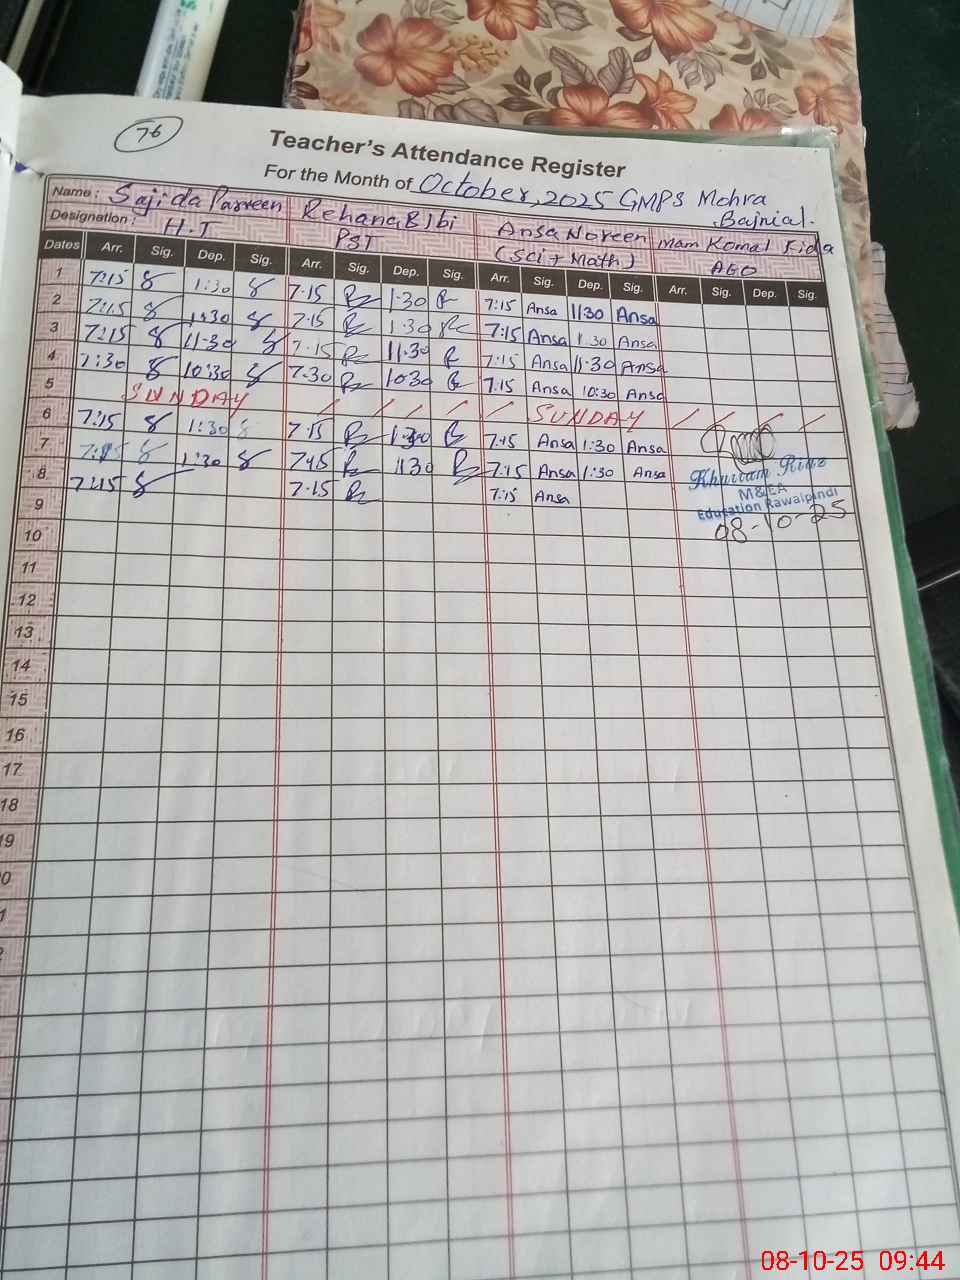 76
Teacher's Attendance Register
For the Month of October, 2025 GMPS Mohra
Bajnial.
Name: Sajida Parveen Rehana Bibi Ansa Noreen Mam Komal Fida
Designation: H.T PST (Sci + Math) AEO
Dates Arr. Sig. Dep. Sig. Arr. Sig. Dep. Sig. Arr. Sig. Dep. Sig. Arr. Sig. Dep. Sig.
1 7:15 1:30 7.15 1.30 7:15 Ansa 1:30 Ansa
2 7:15 1:30 7.15 1.30 7:15 Ansa 1.30 Ansa
3 7:15 11:30 7.15 11.30 7:15 Ansa 11:30 Ansa
4 7:30 10:30 7.30 10.30 7:15 Ansa 10:30 Ansa
5 SUNDAY SUNDAY
6 7:15 1:30 7.15 1.30 7:15 Ansa 1:30 Ansa
7 7:15 1:30 7:15 1.30 7:15 Ansa 1:30 Ansa
8 7:15 7.15 7:15 Ansa
Khurram Riaz
M&EA
Education Rawalpindi
08-10-25
9
10
11
12
13
14
15
16
17
18
19
08-10-25 09:44